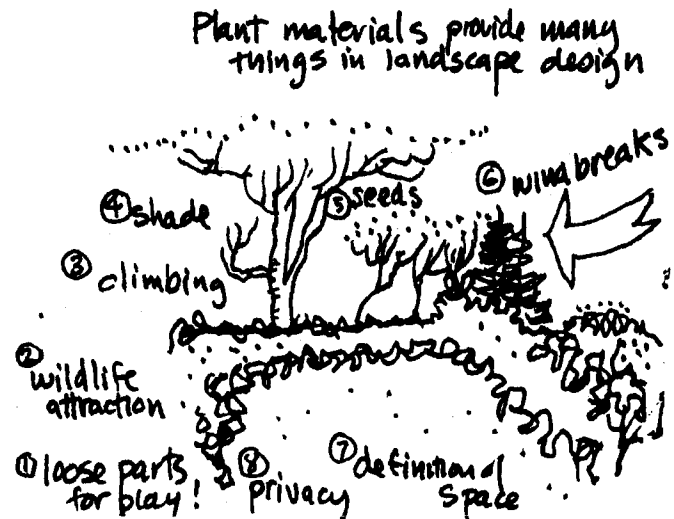 Plant materials provide many
things in landscape design
⑥ windbreaks
④ shade
⑤ seeds
③ climbing
② wildlife
attraction
① loose parts
for play!
⑧ privacy
⑦ definition of
space